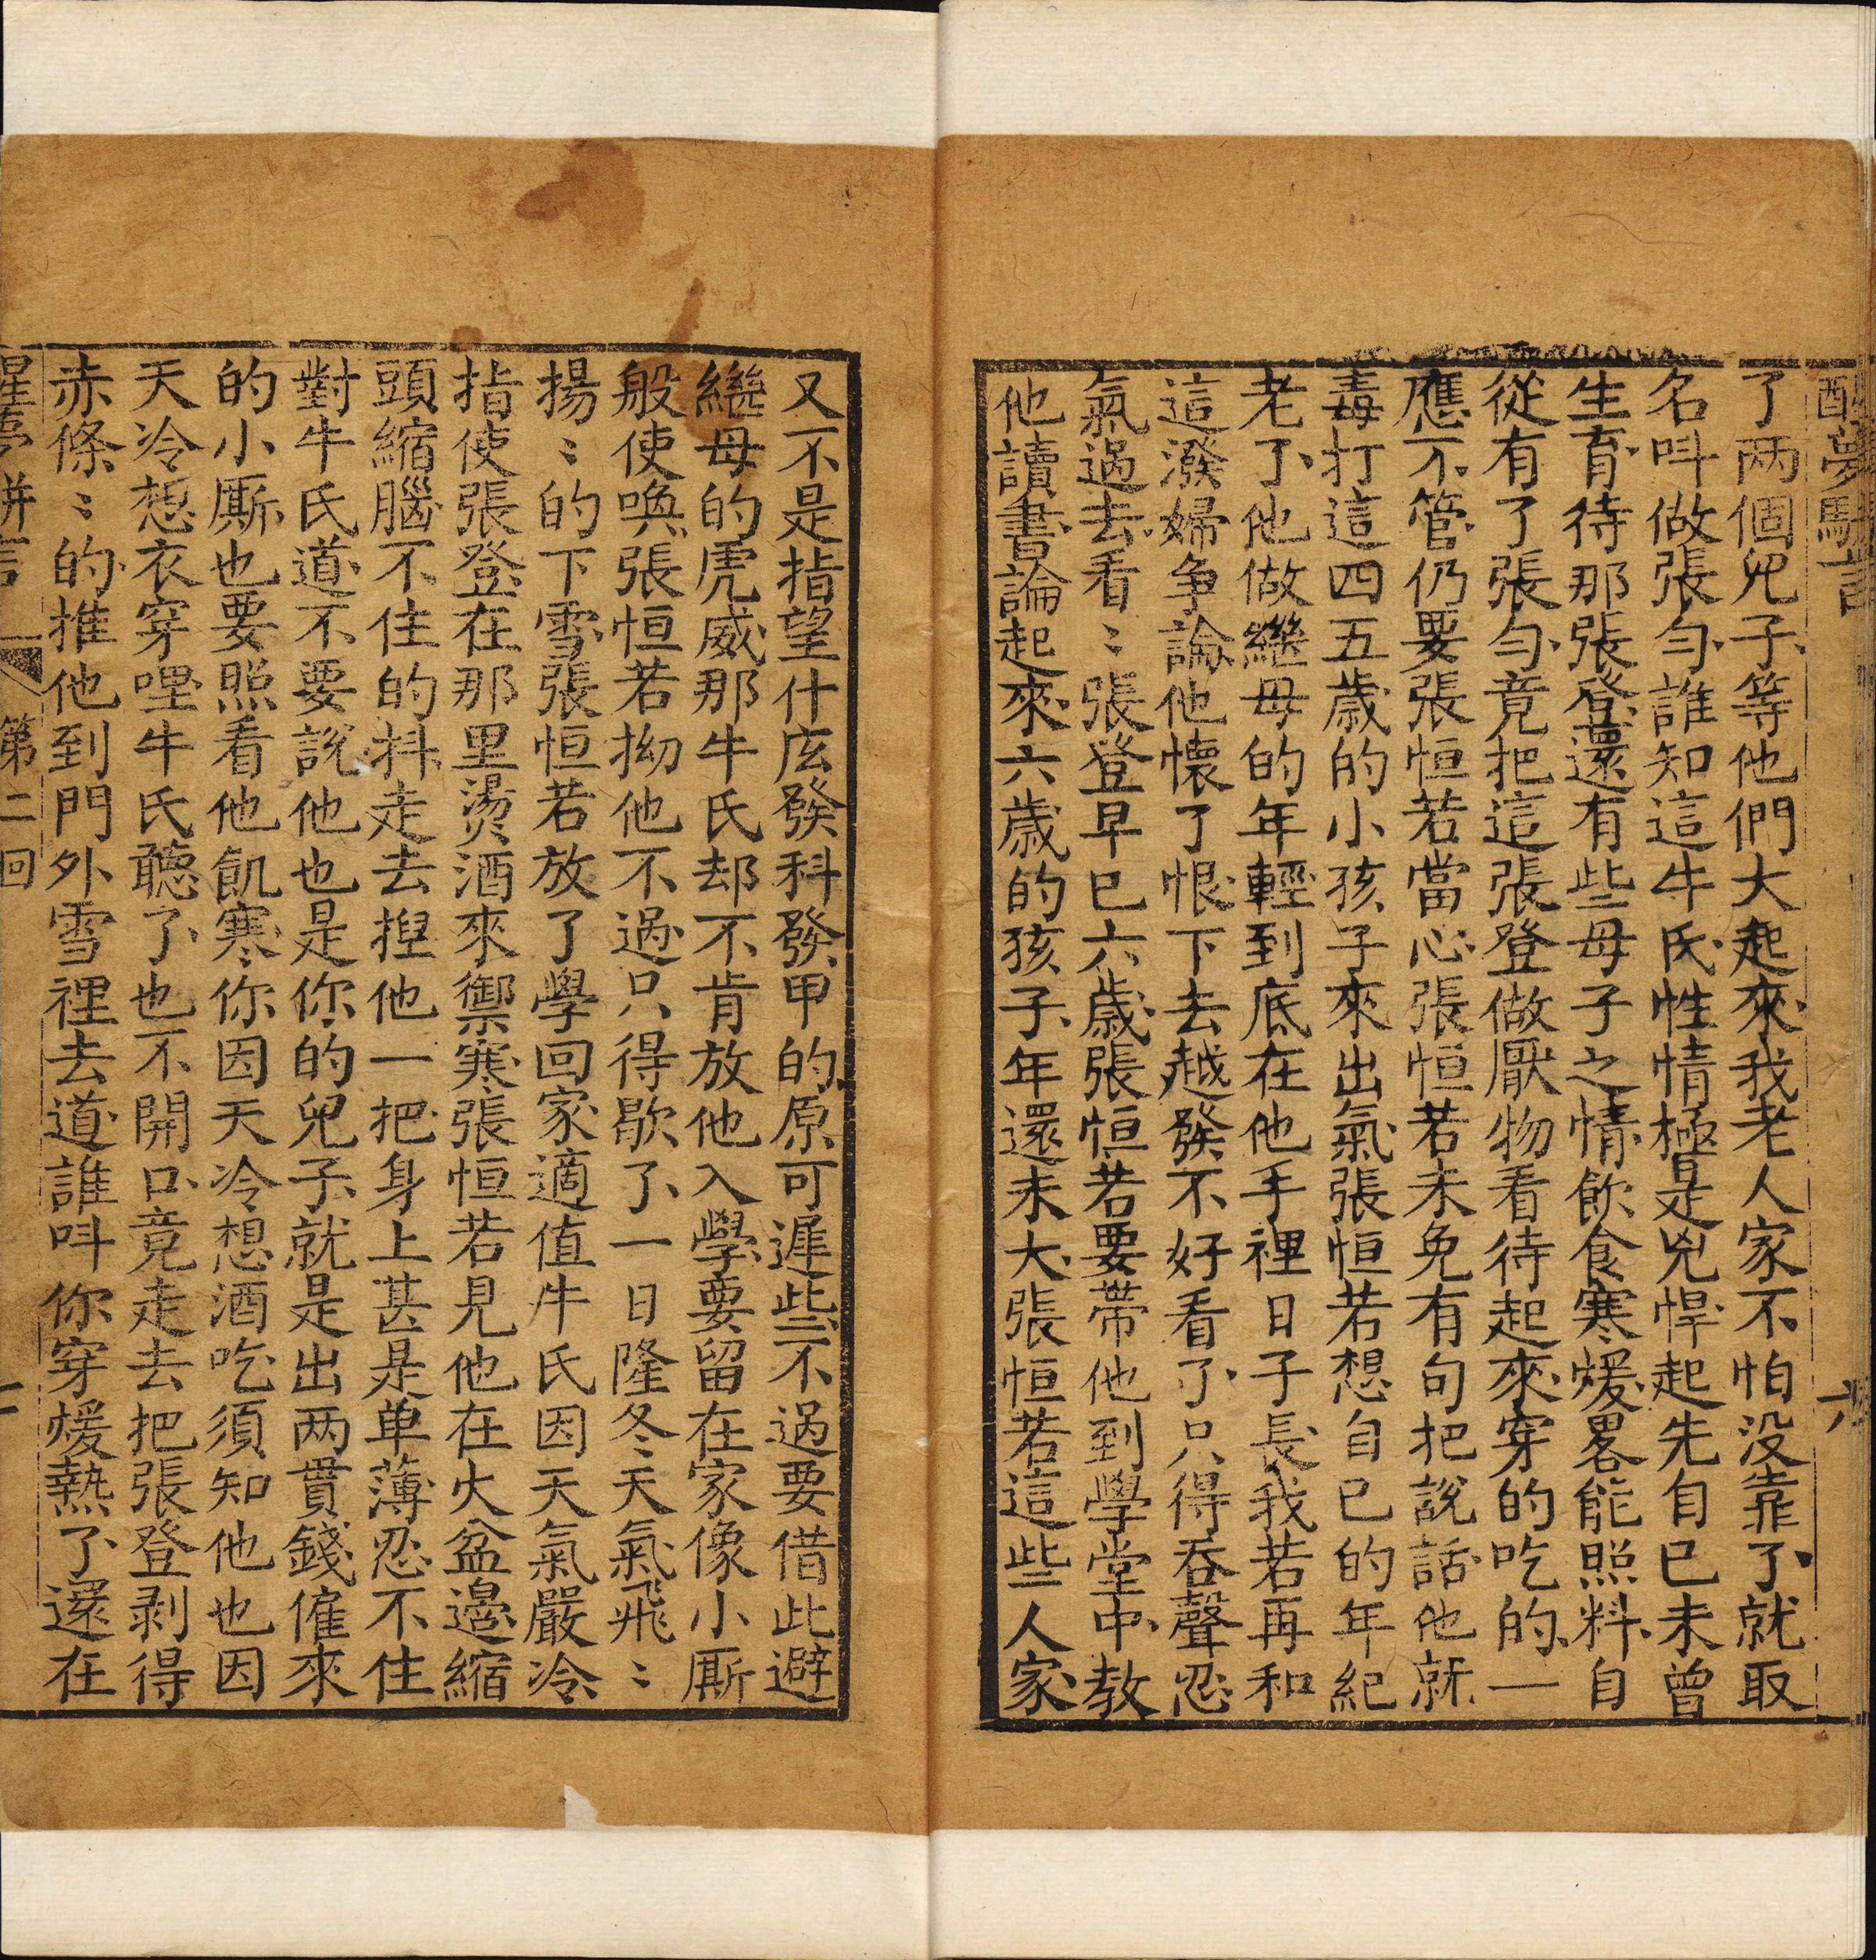 醒夢駢言
六
了两個兒子等他們大起來我老人家不怕没靠了就取
名呌做張勻誰知這牛氏性情極是兇悍起先自已未曾
生育待那張登還有些母子之情飲食寒煖畧能照料自
從有了張勻竟把這張登做厭物看待起來穿的吃的一
應不管仍要張恒若當心張恒若未免有句把說話他就
毒打這四五歲的小孩子來出氣張恒若想自已的年紀
老了他做繼母的年輕到底在他手裡日子長我若再和
這潑婦争論他懐了恨下去越發不好看了只得吞聲忍
氣過去看〻張登早已六歲張恒若要帶他到學堂中教
他讀書論起來六歲的孩子年還未大張恒若這些人家
又不是指望什庅發科發甲的原可遲些不過要借此避
繼母的虎威那牛氏却不肯放他入學要留在家像小厮
般使喚張恒若拗他不過只得歇了一日隆冬天氣飛〻
揚〻的下雪張恒若放了學回家適值牛氏因天氣嚴冷
指使張登在那里燙酒來禦寒張恒若見他在火盆邉縮
頭縮腦不住的抖走去揑他一把身上甚是单薄忍不住
對牛氏道不要說他也是你的兒子就是出两貫錢僱來
的小厮也要照看他飢寒你因天冷想酒吃須知他也因
天冷想衣穿哩牛氏聽了也不開口竟走去把張登剥得
赤條〻的推他到門外雪裡去道誰呌你穿煖熱了還在
醒夢駢言
第二回